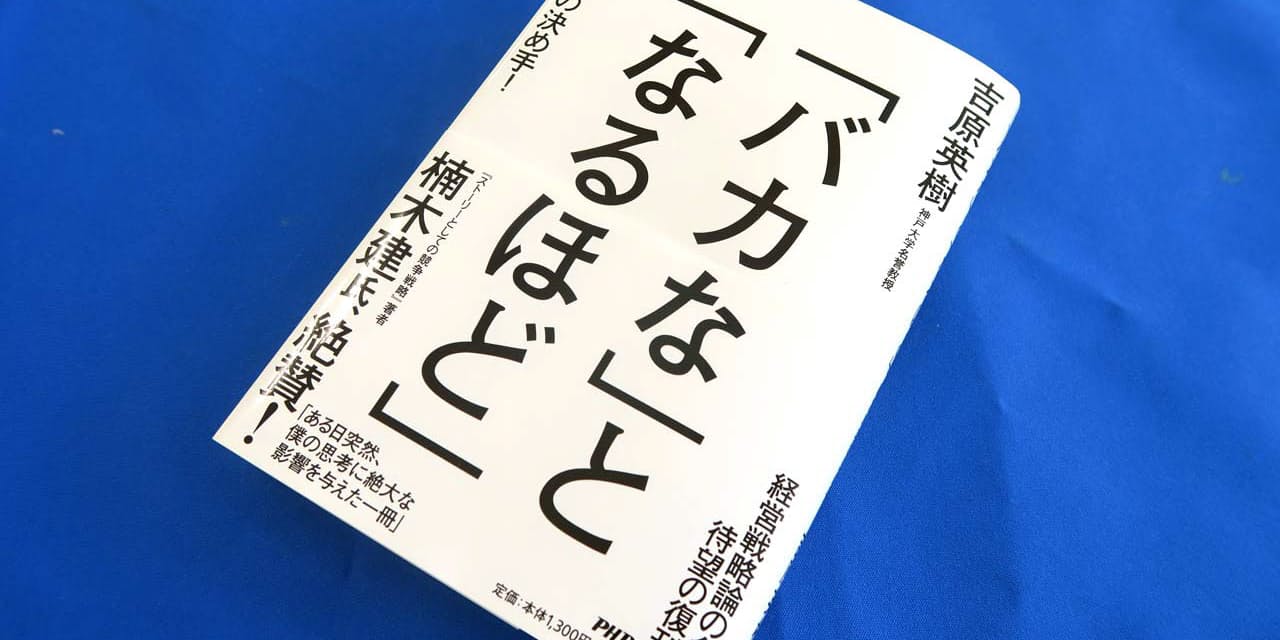 吉原英樹
神戸大学名誉教授
「バカな」と
「なるほど」
経営戦略論の
待望の復
の決め手！
『ストーリーとしての競争戦略』著者
楠木建氏、絶賛！
「ある日突然、
僕の思考に絶大な
影響を与えた一冊」
定価:本体1,300円
PHP